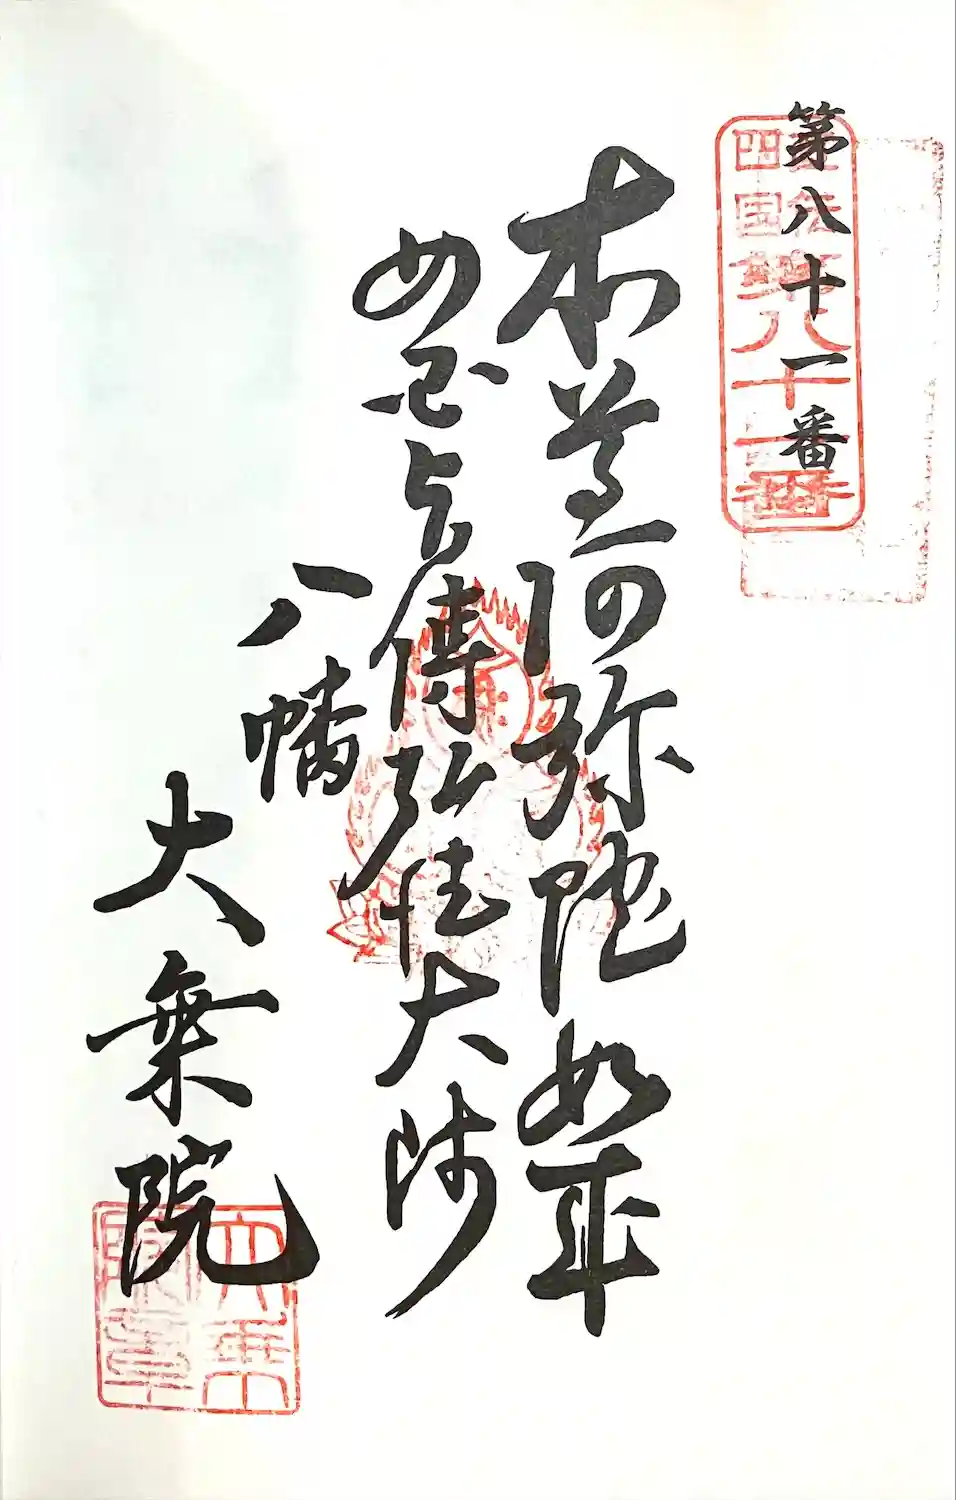 第八十一番
本尊阿弥陀如来
傳弘法大師
八幡
大乗院
四国
八十一番
大乗
院章